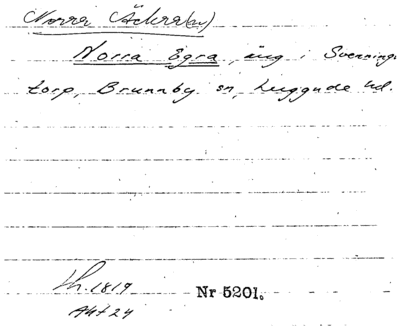 Norra Äckra(ar)
Norra Egra, äng i Svenning,
torp, Brunnby sn, Luggude hd.
Lh. 1819
Akt 24
Nr 5201.